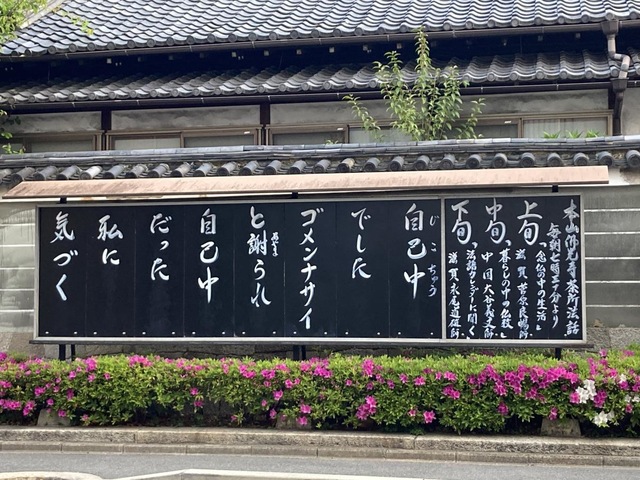 本山佛光寺茶所法話
毎朝七時三十分より
上旬「念仏の中の生活」
滋賀
中旬「暮らしの中の仏教」
中国 大谷義文師
下旬「法語カレンダーに聞く」
滋賀 永尾道雄師
じこちゅう
自己中
でした
ゴメンナサイ
あやま
と謝られ
自己中
だった
私に
気づく